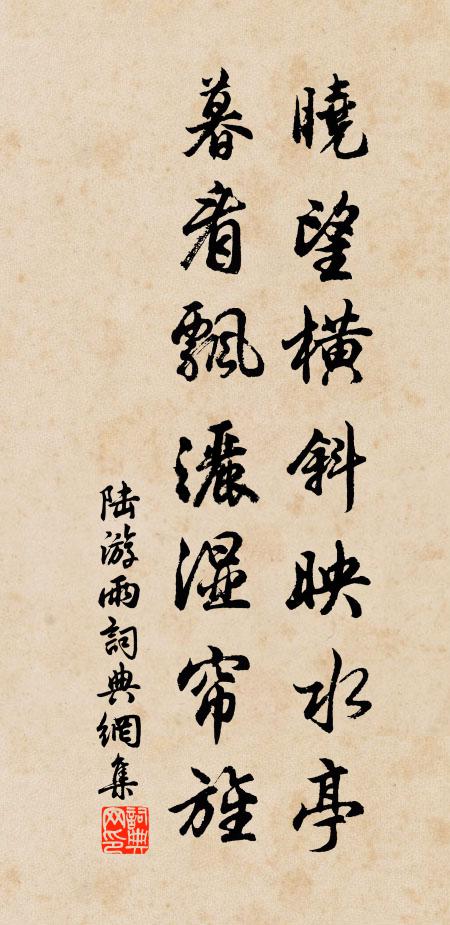 曉望橫斜映水亭
暮看飄灑濕帘旌
陆游雨詞典網集
詞典網印